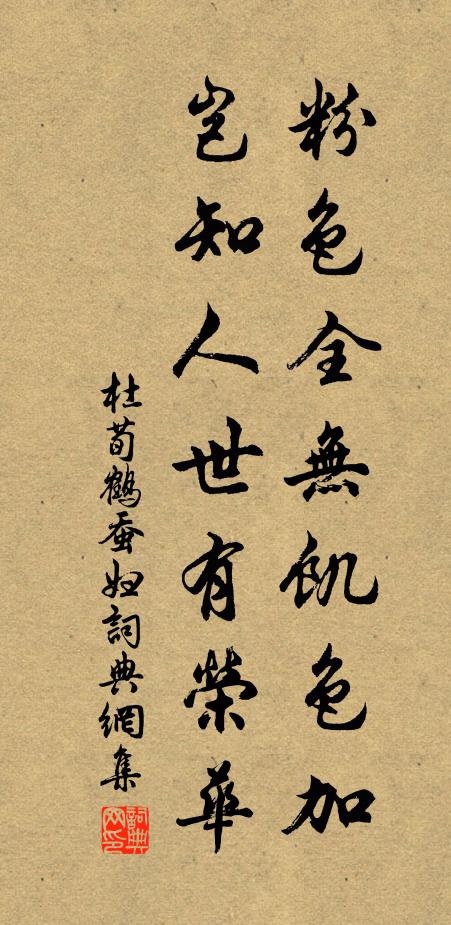 粉色全無飢色加
豈知人世有榮華
杜荀鶴蚕妇詞典網集
詞典網印